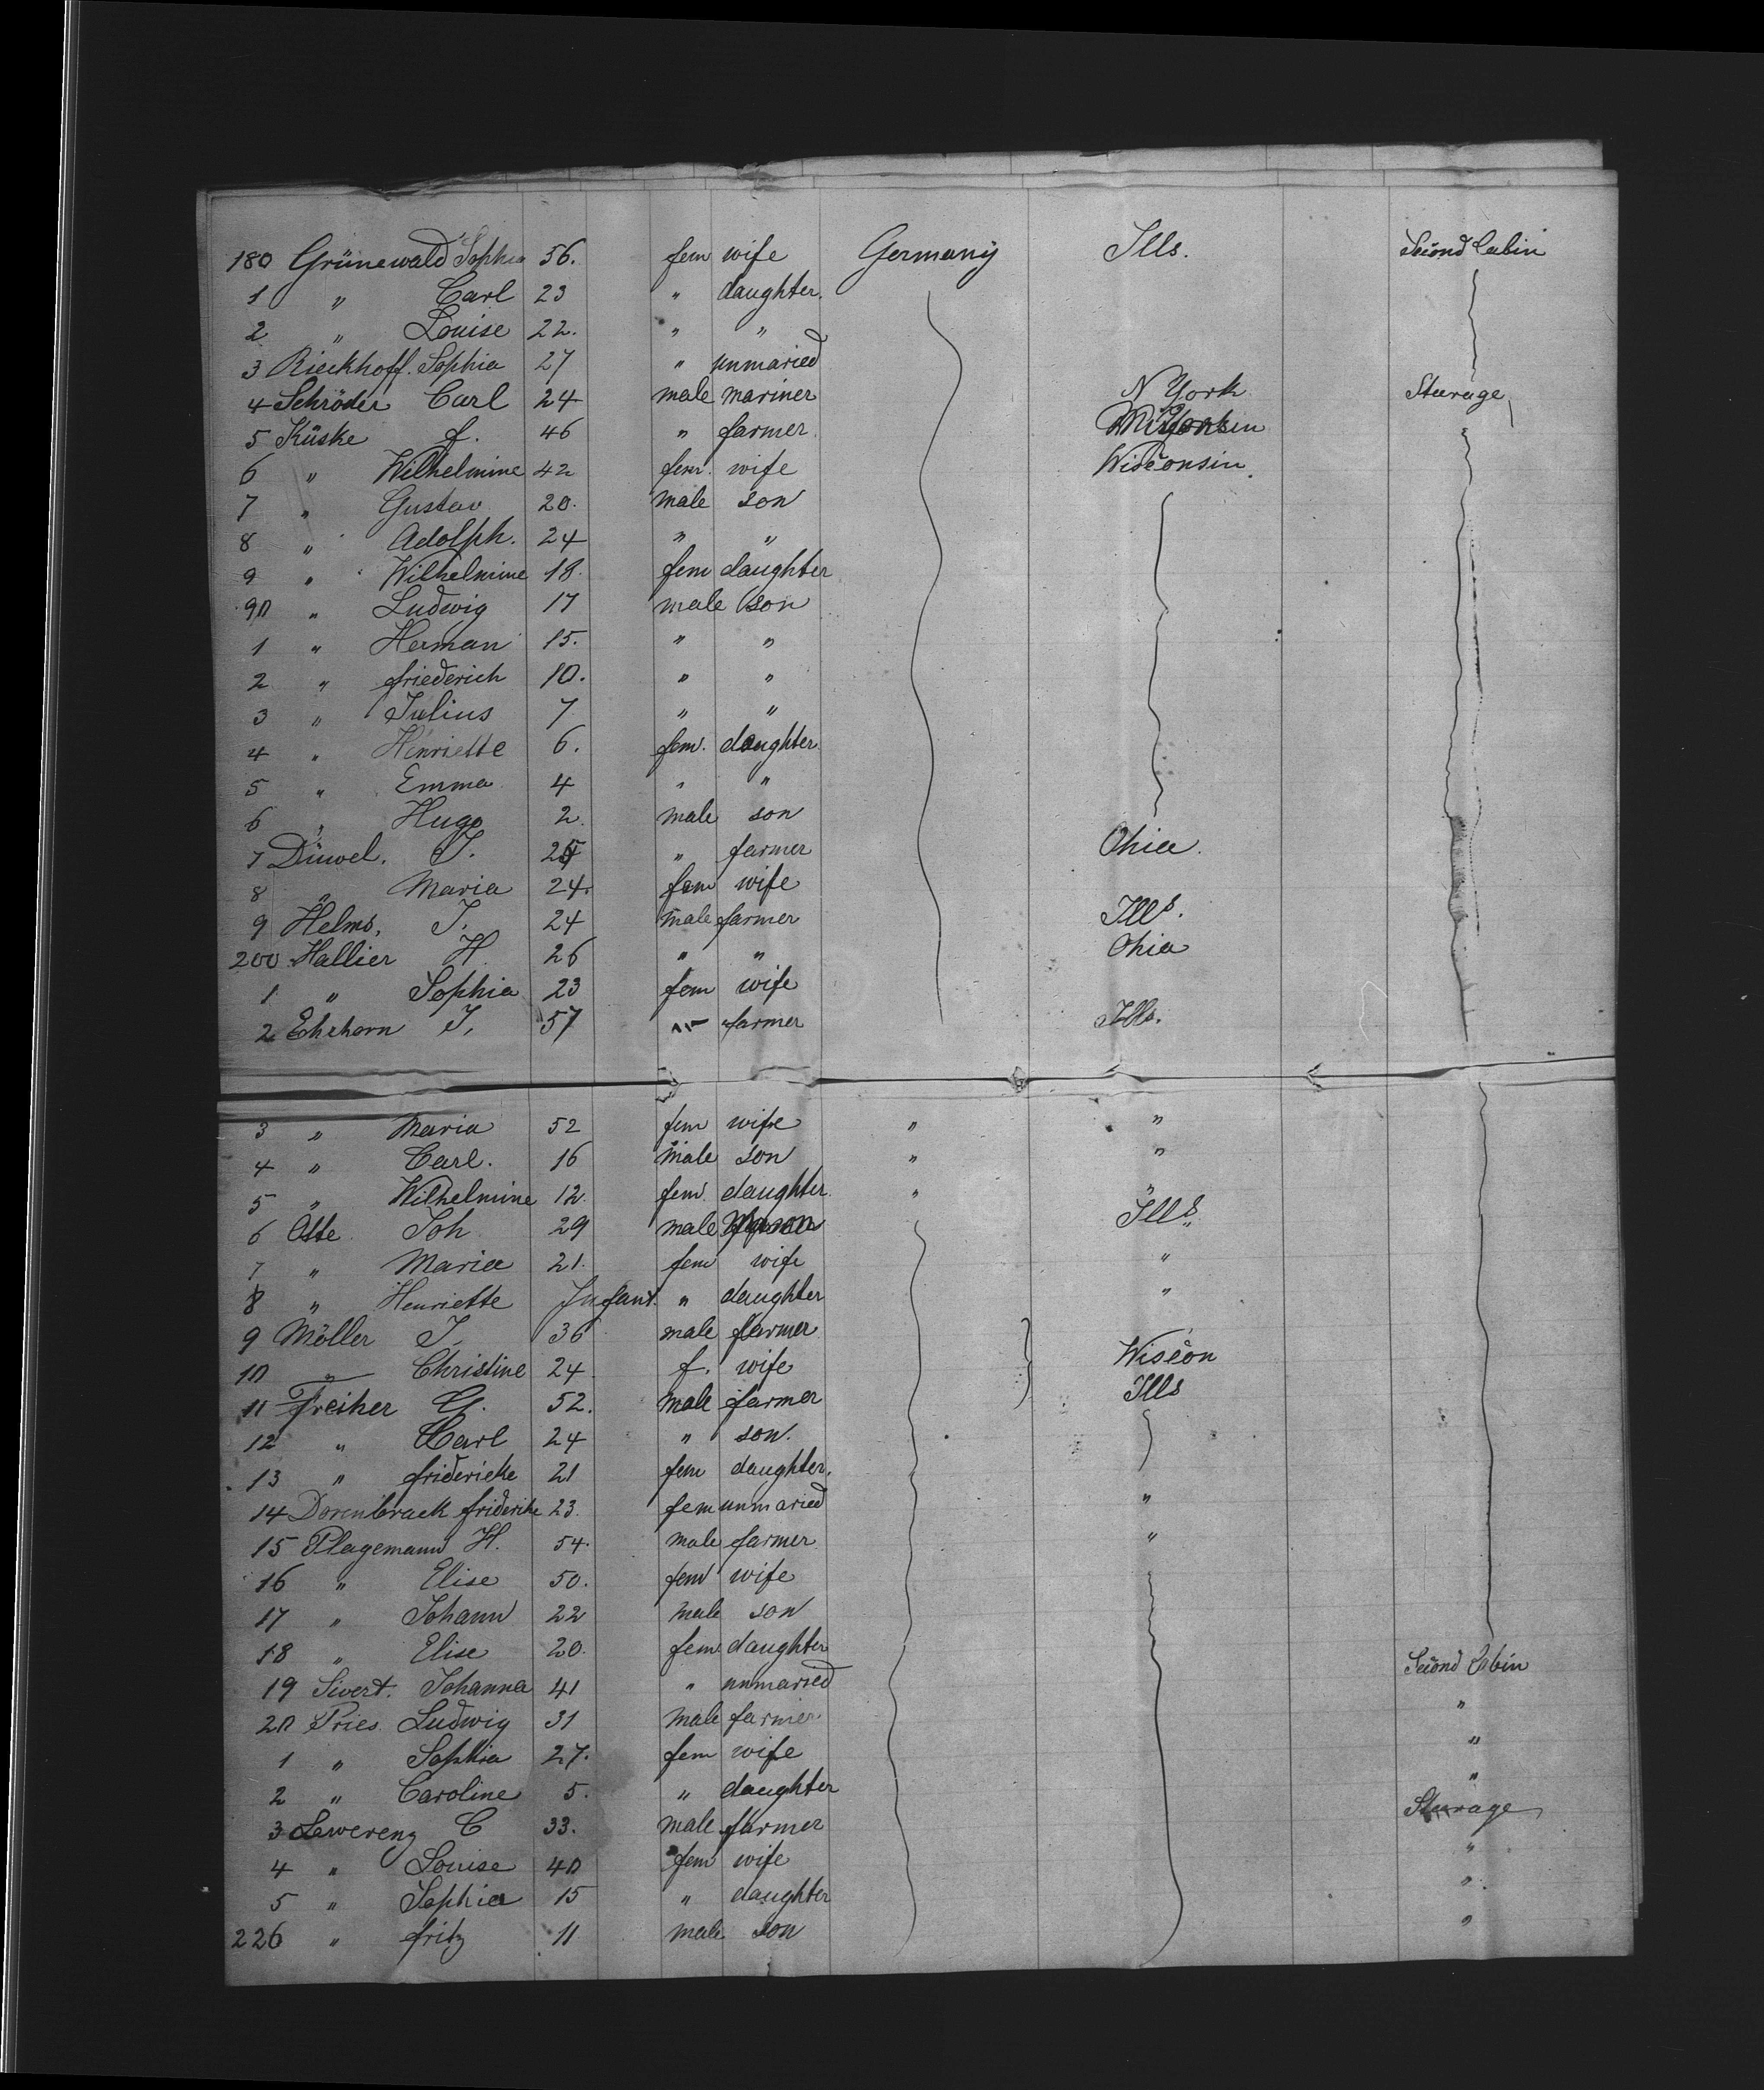 180 Grünewald Sophia 56. fem wife Germany Ills. Second Cabin
1 " Carl 23 " daughter.
2 " Louise 22. " "
3 Rieckhoff. Sophia 27 " unmaried
4 Schröder Carl 24 male mariner N York Steerage
5 Küske f. 46 " farmer
6 " Wilhelmine 42 fem. wife Wisconsin.
7 " Gustav 20. male son
8 " Adolph. 24 " "
9 " Wilhelmine 18. fem daughter
90 " Ludwig 17 male son
1 " Herman 15. " "
2 " friederich 10. " "
3 " Julius 7 " "
4 " Henriette 6. fem. daughter.
5 " Emma 4 " "
6 " Hugo 2. male son
7 Düwel. J. " farmer Ohia.
8 " Maria 24. fem wife
9 Helms, J. 24 male farmer Ills.
200 Hallier H. 26 " " Ohia
1 " Sophia 23 fem wife
2 Ehrhorn J. 57 farmer Ills.
3 " Maria 52 fem wife " "
4 " Carl. 16 male son " "
5 " Wilhelmine 12. fem. daughter " "
6 Otte Joh 29 male Ills
7 " Maria 21. fem wife "
8 " Henriette Infant. " daughter "
9 Möller J. 36 male farmer
10 " Christine 24. f. wife Wiscon
11 Freiher G. 52. male farmer Ills
12 " Carl 24 " son.
13 " fridericke 21 fem daughter.
14 Dorenbrack friderike 23. fem unmaried "
15 Plagemann H. 54. male farmer "
16 " Elise 50. fem wife
17 " Johann 22 male son
18 " Elise 20. fem. daughter
19 Sivert. Johanna 41 " unmaried Second Cabin
20 Pries Ludwig 31 male farmer "
1 " Sophia 27. fem wife "
2 " Caroline 5. " daughter "
3 Lewerenz C 33. male farmer Steerage
4 " Louise 40 fem wife "
5 " Sophia 15 " daughter "
226 " fritz 11 male son "